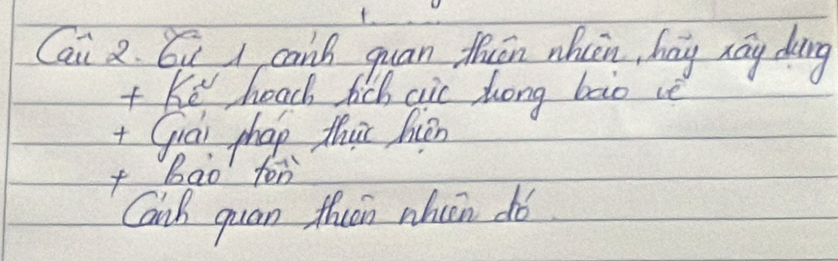 Câu 2. Từ 1 cảnh quan thiên nhiên, hãy xây dựng
+ Kế hoạch tích cực trong bảo vệ
+ Giải pháp thực hiện
+ Bảo tồn
Cảnh quan thiên nhiên đó